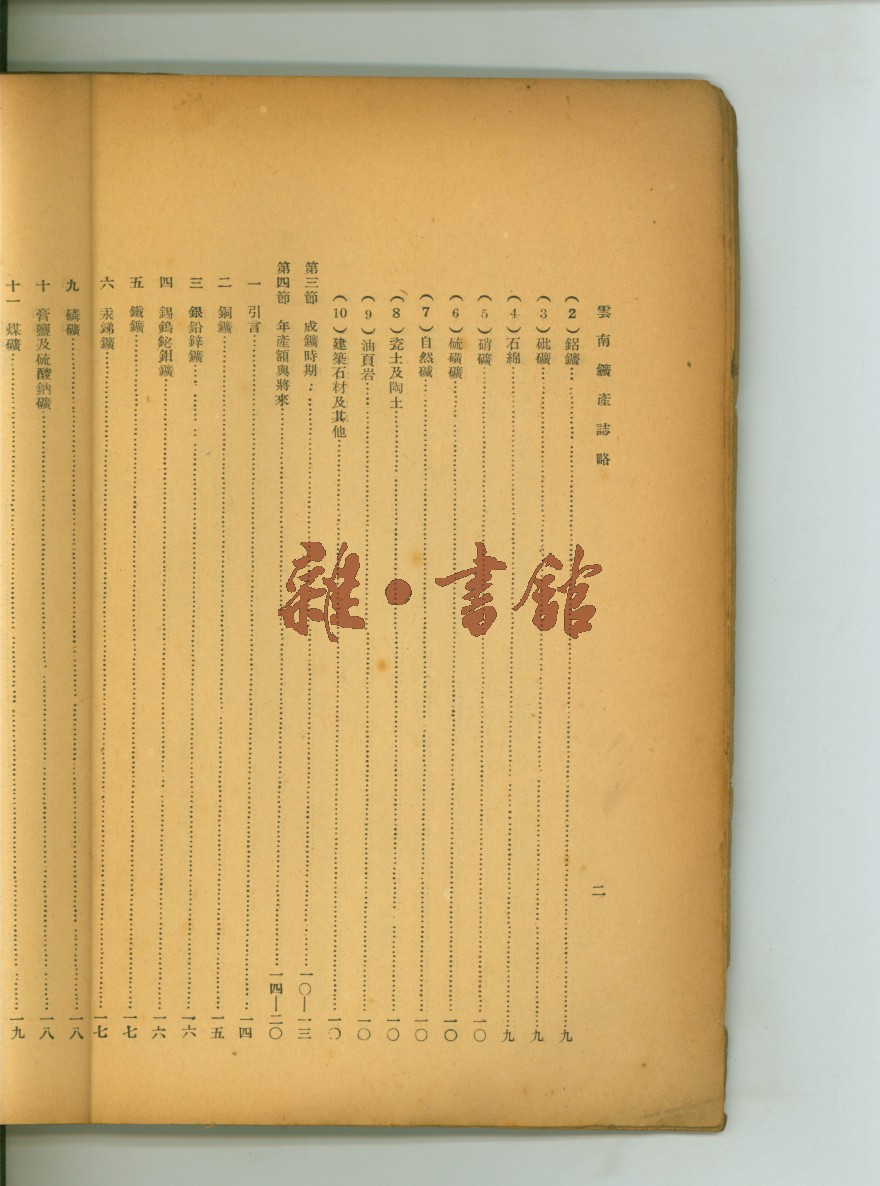 雲南鑛產誌略
二
(2)鋁鑛……九
(3)砒鑛……九
(4)石綿……九
(5)硝鑛……一〇
(6)硫磺鑛……一〇
(7)自然碱……一〇
(8)瓷土及陶土……一〇
(9)油頁岩……一〇
(10)建築石材及其他……一〇
第三節 成鑛時期……一〇—一三
第四節 年產額與將來……一四—二〇
一 引言……一四
二 銅鑛……一五
三 銀鉛鋅鑛……一六
四 錫鎢鉍鉬鑛……一六
五 鐵鑛……一七
六 汞銻鑛……一七
九 磷鑛……一八
十 膏鹽及硫酸鈉鑛……一八
十一 煤鑛……一九
雜·書館